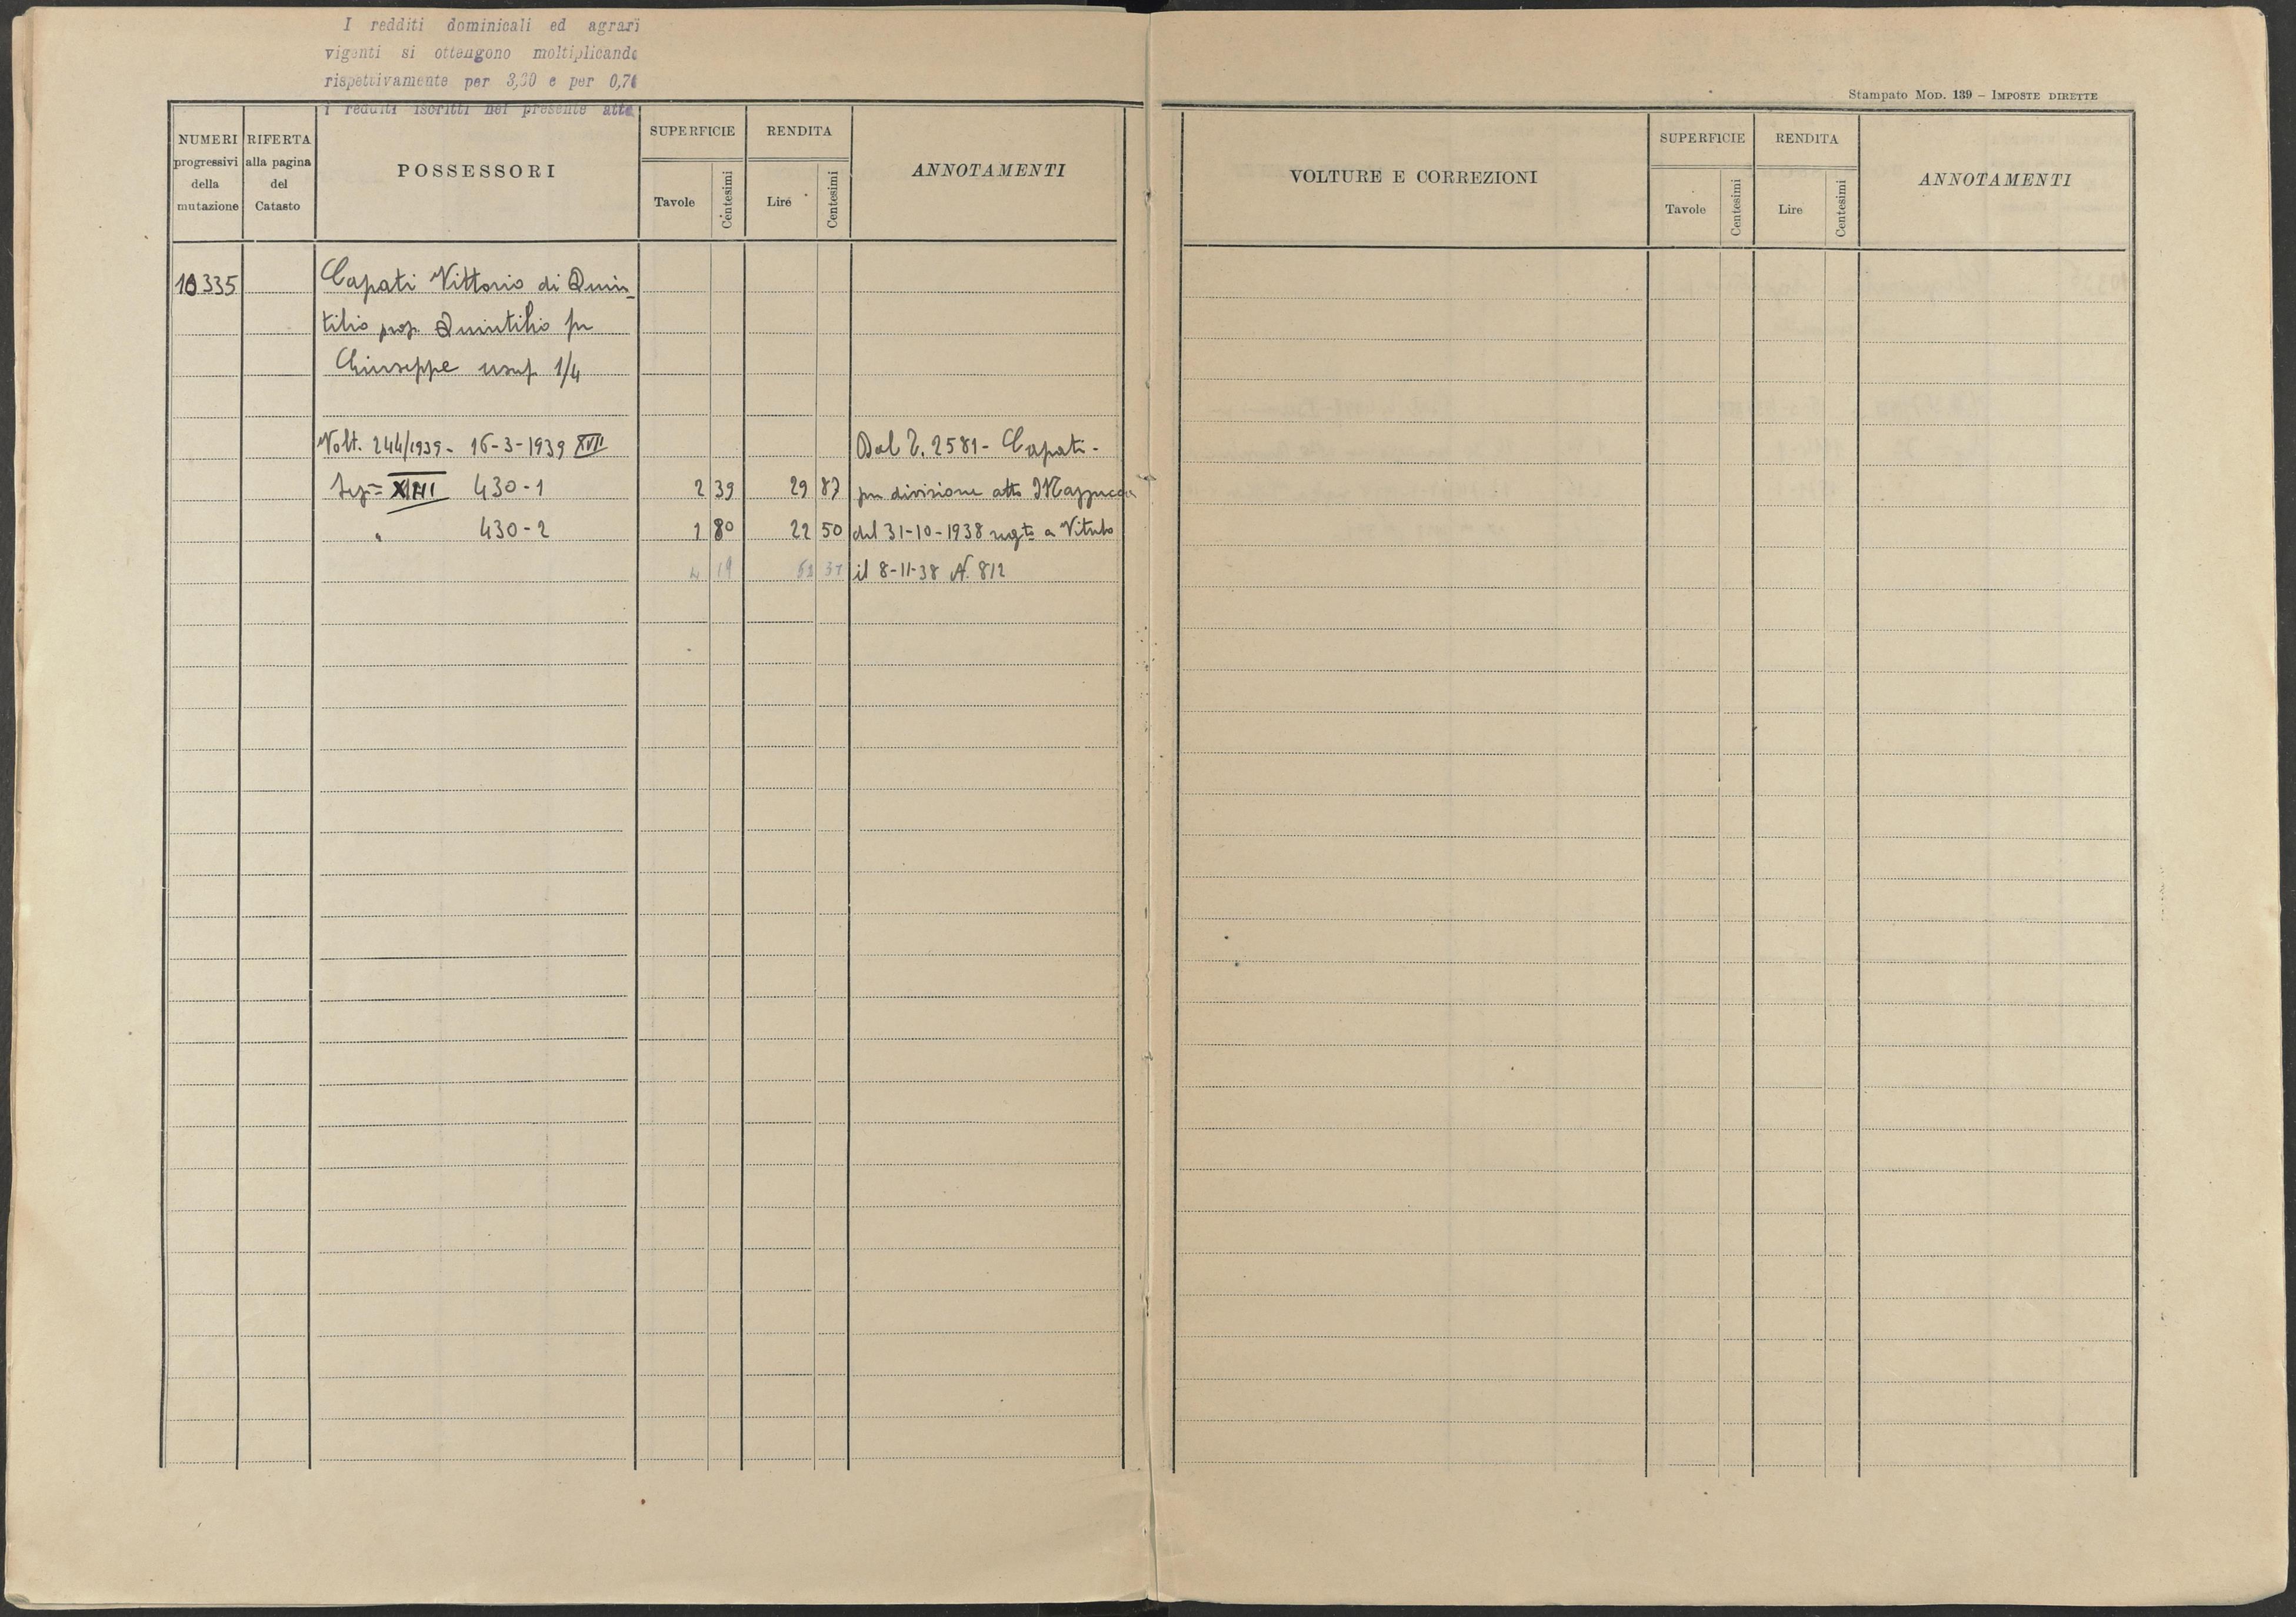 I redditi dominicali ed agrari
vigenti si ottengono moltiplicando
rispettivamente per e per
i redditi iscritti nel presente atto
Stampato Mod. 139 – Imposte dirette
NUMERI progressivi della mutazione
RIFERTA alla pagina del Catasto
POSSESSORI
SUPERFICIE Tavole Centesimi
RENDITA Lire Centesimi
ANNOTAMENTI
VOLTURE E CORREZIONI
SUPERFICIE Tavole Centesimi
RENDITA Lire Centesimi
ANNOTAMENTI
10335 Capati Vittorio di Quin-
tilio prop. Quintilio fu
Giuseppe usuf 1/4
Volt. 244/1939 - 16-3-1939 XVII Dal T. 2581 - Capati -
Sez= 430-1 2 39 29 87 per divisione atto Mazzucca
" 430-2 1 80 22 50 del 31-10-1938 regto a Viterbo
4 19 52 37 il 8-11-38 N. 812